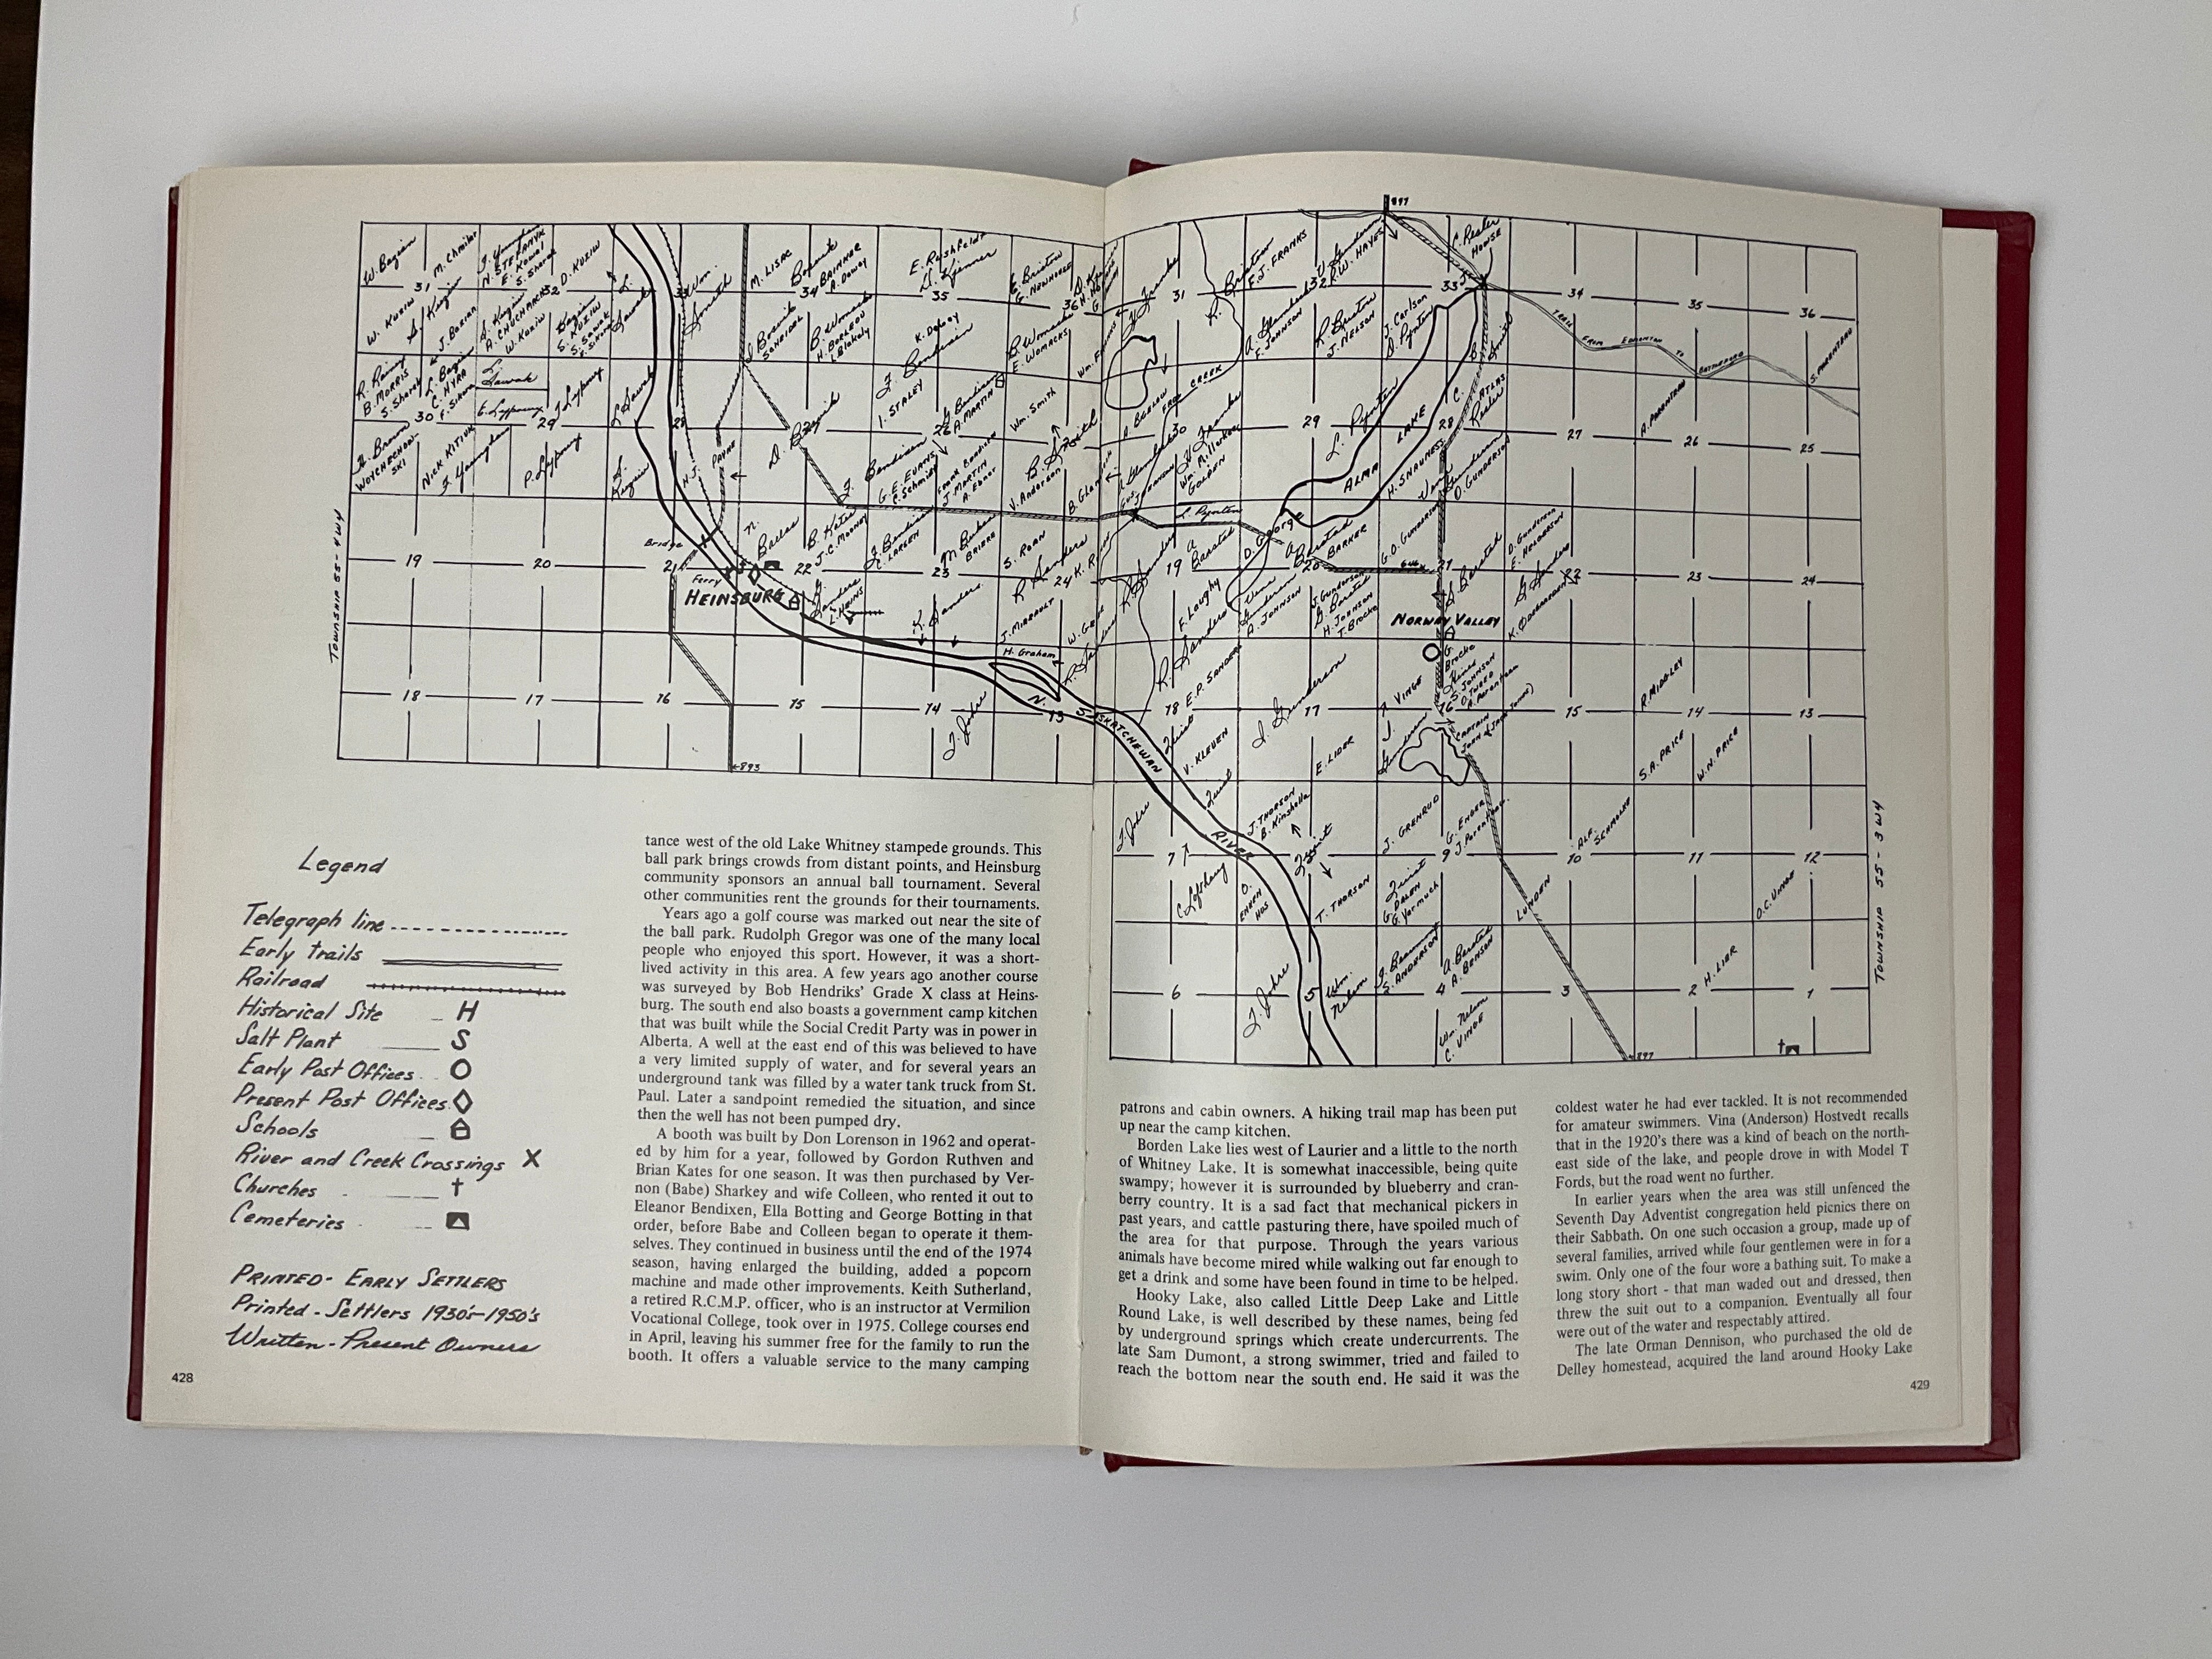 W. Bazian
M. Chmilar
N. STEFANYK
E. Kowal
S. Sharek
D. KUZIW
31
32
L. Sawak
33
Wm. Smith
M. LISAC
Boznik
34
BRINKAR
A. Dewey
E. Rushfeldt
35
E. Bristow
G. NEWHOUSE
36
W. KUZIW
J. BAZIAN
A. CHUCHMARCH
W. KUZIW
S. KUZIW
S. Sawak
J. Boznik
B. Womacks
H. BORLEON
K. Dewey
B. Womacks
E. WOMACKS
R. Rainey
B. MORRIS
S. Sharek
30
L. Bazian
C. HYRA
F. Sikora
29
L. Sawak
28
27
D. Boznik
I. STALEY
26
A. MARTIN
Wm. SMITH
WOYCHECHOW-
SKI
NICK KITIUK
P. Lyppung
S. Kuzein
H.J. PAYNE
J. Bendixen
G.E. EVANS
C. Schmidt
FRANK BENDIXEN
J. MARTIN
V. Anderson
B. Smith
19
20
21
Bridge
Ferry
HEINSBURG
N. Ballas
22
B. Kates
J.C. MOONEY
J. Bendixen
C. LARSEN
23
BRIERE
S. ROAN
R. Sanders
24
L. HEINS
K. Sanders
J. MIRRAULT
H. Graham
18
17
16
15
14
13
J. Johre
N. SASKATCHEWAN
RIVER
893
TOWNSHIP 55 - 4 W 4
897
31
R. Bristow
F.J. FRANKS
32
R.W. HAYES
33
C. Rester
HOUSE
34
35
36
F. JOHNSON
R. Bristow
J. NELSON
J. Carlson
D. Poynter
TRAIL FROM EDMONTON TO BATTLEFORD
S. PARENTEAU
CREEK
30
29
L. Poynter
LAKE
ALMA
28
C. Rester
27
A. PARENTEAU
26
25
GOLDEN
H. SNAUNESS
O. GUNDERSON
L. Poynter
D. George
A. Bersted
BARKER
G.O. GUNDERSON
19
20
646
21
D. Gunderson
E. HOLBERSON
22
23
24
F. Loughy
R. Sanders
A. JOHNSON
J. Gunderson
G. Bersted
H. JOHNSON
T. Brocke
NORWAY VALLEY
G. Brocke
S. JOHNSON
O. TWEED
18
E.P. SANDERS
J. Gunderson
17
T. VINGE
16
15
R. MIDDLEY
14
13
CAPTAIN
V. KLEVEN
E. LIDER
S.A. PRICE
W.N. PRICE
J. Johre
J. THORSON
B. Kinshella
J. GRENRUD
G. ENGER
J. Parenteau
ALF. SCHMOLKE
7
9
10
11
12
C. Loftberg
T. THORSON
G. DALEN
G. Yarmuch
LUNDEN
O.C. VINGE
6
J. Johre
5
Wm. Nelson
S. ANDERSON
4
A. Bersted
A. BENSON
3
2
H. LIER
1
Wm. Nelson
C. VINGE
897
TOWNSHIP 55 - 3 W 4
Legend
Telegraph line
Early trails
Railroad
Historical Site H
Salt Plant S
Early Post Offices
Present Post Offices
Schools
River and Creek Crossings X
Churches
Cemeteries
PRINTED - EARLY SETTLERS
Printed - Settlers 1930's-1950's
Written - Present Owners
428
tance west of the old Lake Whitney stampede grounds. This
ball park brings crowds from distant points, and Heinsburg
community sponsors an annual ball tournament. Several
other communities rent the grounds for their tournaments.
Years ago a golf course was marked out near the site of
the ball park. Rudolph Gregor was one of the many local
people who enjoyed this sport. However, it was a short-
lived activity in this area. A few years ago another course
was surveyed by Bob Hendriks' Grade X class at Heins-
burg. The south end also boasts a government camp kitchen
that was built while the Social Credit Party was in power in
Alberta. A well at the east end of this was believed to have
a very limited supply of water, and for several years an
underground tank was filled by a water tank truck from St.
Paul. Later a sandpoint remedied the situation, and since
then the well has not been pumped dry.
A booth was built by Don Lorenson in 1962 and operat-
ed by him for a year, followed by Gordon Ruthven and
Brian Kates for one season. It was then purchased by Ver-
non (Babe) Sharkey and wife Colleen, who rented it out to
Eleanor Bendixen, Ella Botting and George Botting in that
order, before Babe and Colleen began to operate it them-
selves. They continued in business until the end of the 1974
season, having enlarged the building, added a popcorn
machine and made other improvements. Keith Sutherland,
a retired R.C.M.P. officer, who is an instructor at Vermilion
Vocational College, took over in 1975. College courses end
in April, leaving his summer free for the family to run the
booth. It offers a valuable service to the many camping
patrons and cabin owners. A hiking trail map has been put
up near the camp kitchen.
Borden Lake lies west of Laurier and a little to the north
of Whitney Lake. It is somewhat inaccessible, being quite
swampy; however it is surrounded by blueberry and cran-
berry country. It is a sad fact that mechanical pickers in
past years, and cattle pasturing there, have spoiled much of
the area for that purpose. Through the years various
animals have become mired while walking out far enough to
get a drink and some have been found in time to be helped.
Hooky Lake, also called Little Deep Lake and Little
Round Lake, is well described by these names, being fed
by underground springs which create undercurrents. The
late Sam Dumont, a strong swimmer, tried and failed to
reach the bottom near the south end. He said it was the
coldest water he had ever tackled. It is not recommended
for amateur swimmers. Vina (Anderson) Hostvedt recalls
that in the 1920's there was a kind of beach on the north-
east side of the lake, and people drove in with Model T
Fords, but the road went no further.
In earlier years when the area was still unfenced the
Seventh Day Adventist congregation held picnics there on
their Sabbath. On one such occasion a group, made up of
several families, arrived while four gentlemen were in for a
swim. Only one of the four wore a bathing suit. To make a
long story short - that man waded out and dressed, then
threw the suit out to a companion. Eventually all four
were out of the water and respectably attired.
The late Orman Dennison, who purchased the old de
Delley homestead, acquired the land around Hooky Lake
429